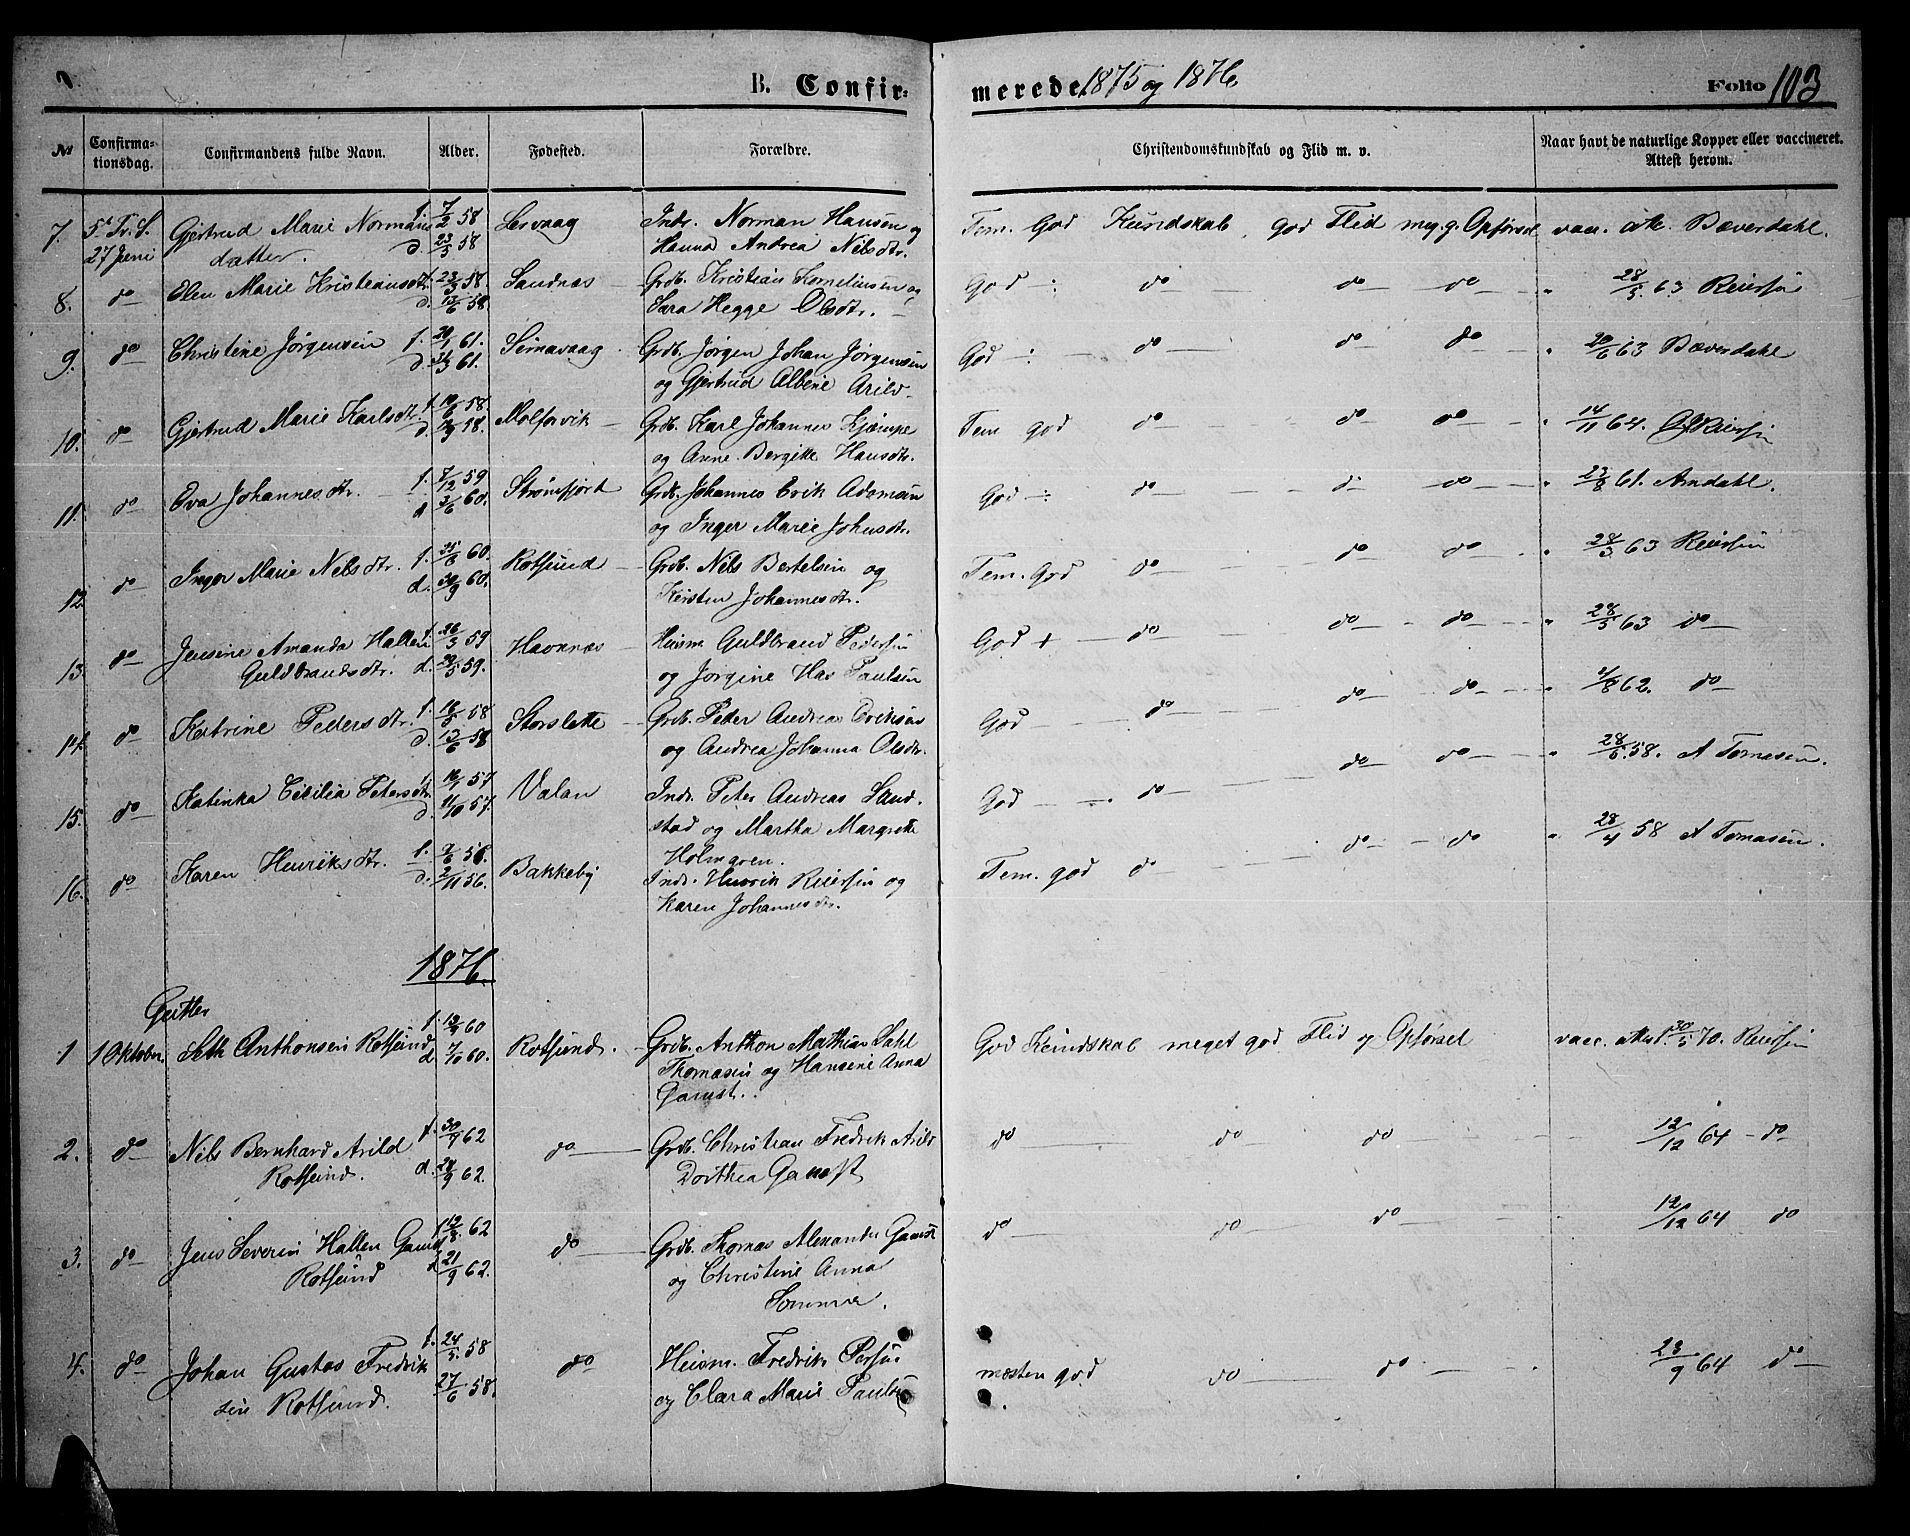 B. Confir- merede 1875 og 1876 Folio 103
№ Confirma-tionsdag. Confirmandens fulde Navn. Alder. Fødested. Forældre. Christendomskundskab og Flid m. v. Naar havt de naturlige Kopper eller vaccineret. Attest herom.
7. 5 S. Tr. S. Gjertrud Marie Normans f. 7/2 58 Lervaag Indr. Norman Hansen og Tem. God Kundskab, god Flid meg. g. Opførsel vac. att. Bæverdahl.
27 Juni datter. d. 23/3 58 Hanna Andrea Nilsdtr.
8. do Elen Marie Kristiansdtr. f. 23/3 58 Sandnæs Grdb. Kristian Kornelius en og God do do do " 28/5 63 Reiersen
d. 13/6 58 Sara Hegge Olsdtr.
9. do Christine Jørgensen f. 20/1 61. Seinavaag Grdb. Jørgen Johan Jørgensen God do do do " 20/6 63 Bæverdahl
d. 31/3 61. og Gjertrud Albine Arild
10. do Gjertrud Marie Karlsdtr. f. 58. Molforvik Grdb. Karl Johannes Kjæmpe Tem god do do do " 14/11 64. Reiersen
d. 58. og Anne Bergitte Hansdtr.
11. do Eva Johannesdtr. f. 7/12 59 Strømfjord Grdb. Johannes Erik Adamsen God do do do " 23/8 61. Amdahl.
d 3/6 60. og Inger Marie Johnsdtr.
12 do Inger Marie Nelsdtr. f. 25/8 60. Rotsund Grdb. Nils Bertelsen og Tem. God do do do " 28/3 63 Reiersen
d. 30/9 60. Kirsten Johannesdtr.
13. do Jensine Amanda Hallen f. 26/3 59 Havnnæs Husm Guldbrand Pedersen God + do do do " 28/5 63 do
Guldbrandsdtr. d. 29/5 59. og Jørgine Has Paulsen
14. do Katrine Pedersdtr. f. 16/5 58 Storslette Grdb. Peder Andreas Eriksen God do do do " 4/8 62. do
d. 13/6 58 og Andrea Johanna Olsdtr.
15. do Katinka Cecilia Petersdtr f. 16/9 57 Valan Indr. Peter Andreas Sand- God do do do " 28/6 58. A Tomasen.
d. 11/10 57. stad og Martha Margrethe
Holmgren.
16. do Karen Henriksdtr. f. 7/6 56. Bakkeby Indr. Henrik Reiersen og Tem. god do do do " 28/4 58 A Tomasen.
d. 2/11 56. Karen Johannesdtr.
1876.
Gutter
1 1 Oktober. Seth Anthonsen Rotsund f. 13/9 60 Rotsund. Grdb. Anthon Mathias Dahl God Kundskab meget god Flid og Opførsel vacc. attest. 30/5 70. Reiersen
d 7/10 60. Thomasen og Hansine Anna
Gamst.
2. do Nils Bernhard Arild f. 30/7 62 do Grdb. Christian Fredrik Arild do do do 12/12 64 do
Rotsund. d. 28/9 62. Dorthea Gamst
3. do Jens Severin Hallen Gamst f 12/8. 62 do Grdb. Thomas Alexander Gamst do do do 12/12 64 do
Rotsund d 21/9 62. og Christine Anna
Sommer.
4. do Johan Gustav Fredrik f. 24/3. 58 do Husm. Fredrik Persen næsten god do do 23/9 64 do
sen Rotsund. 27/6 58. og Clara Marie Paulsen